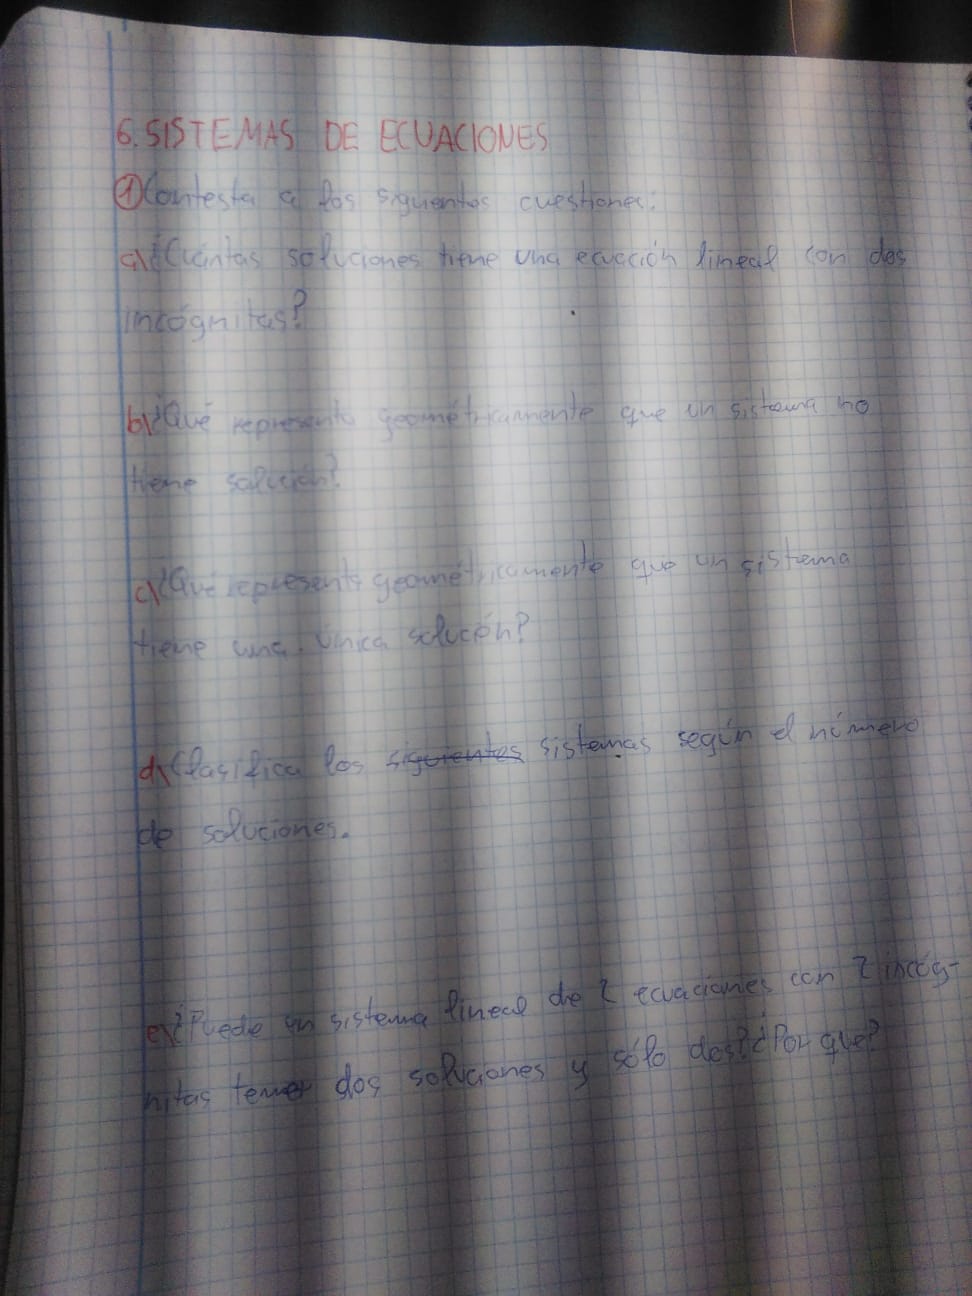 6. SISTEMAS DE ECUACIONES
① Contesta a las siguentes cuestiones:
a) ¿Cuántas soluciones tiene una ecuación lineal con dos
incógnitas?
b) ¿Qué representa geométricamente que un sistema no
tiene solución?
c) ¿Qué representa geométricamente que un sistema
tiene una única solución?
d) Clasifica los siguientes sistemas según el número
de soluciones.
e) ¿Puede un sistema lineal de 2 ecuaciones con 2 incóg-
nitas tener dos soluciones y sólo dos? ¿Por qué?